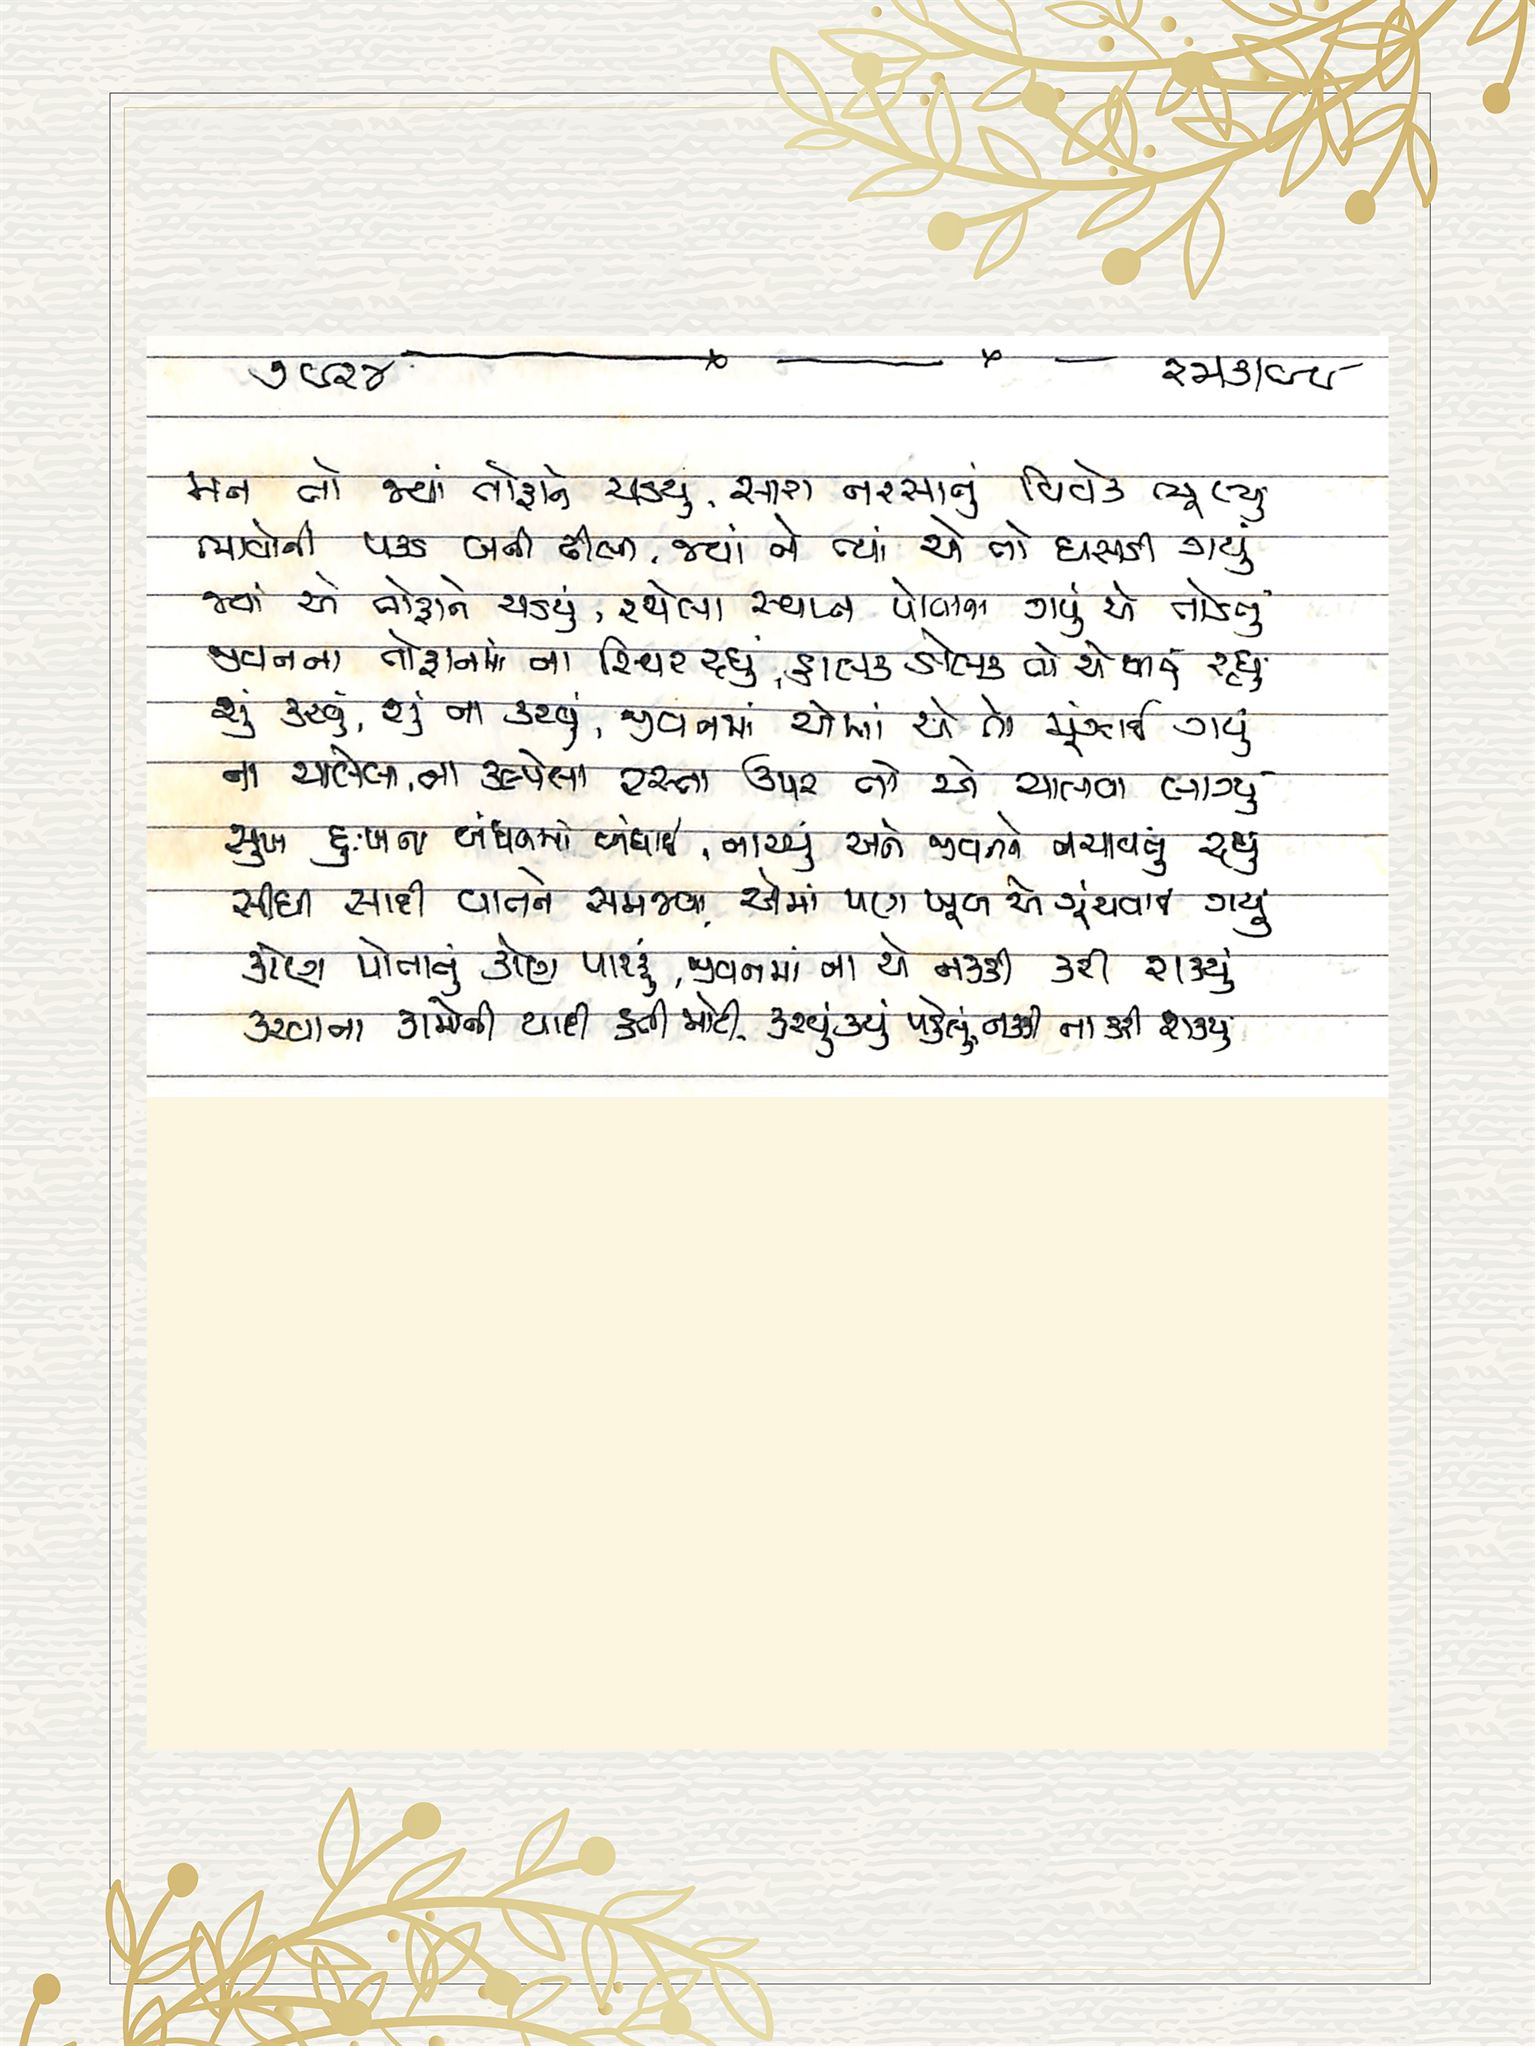 ૭૯૨૪
મન તો જ્યાં તોફાને ચડયું, સારા નરસાનું વિવેક ભૂલ્યુ
ભાવોની પકડ બની ઢીલી, જ્યાં ને ત્યાં એ તો ઘસડી ગયું
જ્યાં એ તોફાને ચડયું, રચેલા સ્વપ્ન પોતાના ગયું એ તોડતું
જીવનના તોફાનમાં ના સ્થિર રહ્યું, હાલક ડોલક તો એ થાઈ રહ્યુ
શું કરવું, શું ના કરવું, જીવનમાં એમાં એ તો મૂંઝાઈ ગયું
ના ચાલેલા, ના કલ્પેલા રસ્તા ઉપર તો એ ચાલવા લાગ્યુ
સુખ દુઃખના બંધનમાં બંધાઈ, નાચ્યું અને જીવનને નચાવતું રહ્યુ
સીધી સાદી વાતને સમજવા, એમાં પણ ખૂબ એ ગૂંચવાઈ ગયુ
કોણ પોતાનું કોણ પારકું, જીવનમાં ના એ નક્કી કરી શક્યું
કરવાના કામોની યાદી હતી મોટી, કરવું કયું પહેલું, નક્કી ના કરી શક્યુ